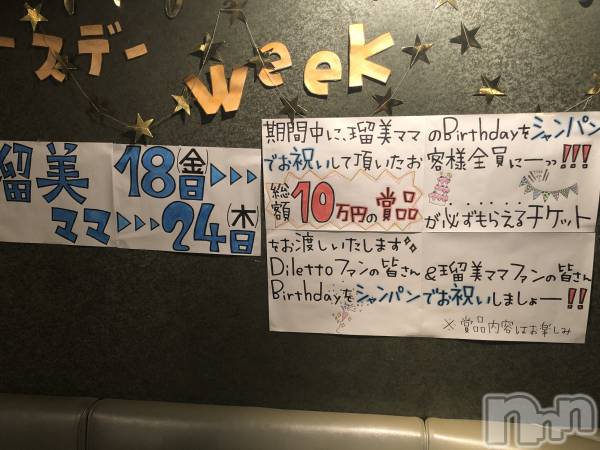 ースデー
week
瑠美 18日(金)▶▶▶
ママ▶▶▶24日(木)
期間中に、瑠美ママのBirthdayをシャンパン
でお祝いして頂いたお客様全員にーっ!!!
総額10万円の賞品
が必ずもらえるチケット
をお渡しいたします
Dilettoファンの皆さん&瑠美ママファンの皆さん
Birthdayをシャンパンでお祝いしましょー!!
※賞品内容はお楽しみ
nnn